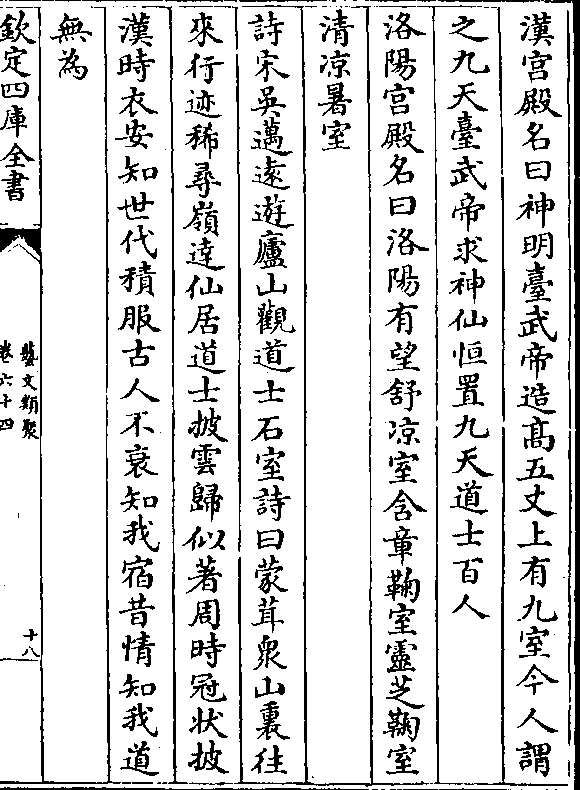 漢宫殿名曰神明臺武帝造髙五丈上有九室今人謂
之九天臺武帝求神仙恒置九天道士百人
洛陽宫殿名曰洛陽有望舒凉室含章鞠室靈芝鞠室
清凉暑室
詩宋吳邁逺遊廬山觀道士石室詩曰蒙茸衆山裏往
來行迹稀尋嶺達仙居道士披雲歸似著周時冠状披
漢時衣安知世代積服古人不衰知我宿昔情知我道
無為
欽定四庫全書
藝文類聚
卷六十四
十八